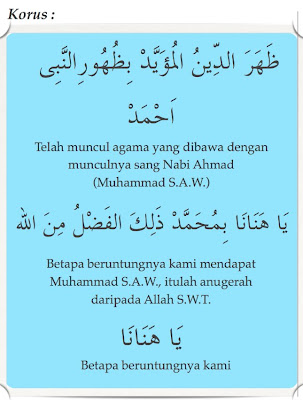 Korus :
ظَهَرَ الدِّينُ الْمُؤَيَّدْ بِظُهُورِالنَّبِى
اَحْمَدْ
Telah muncul agama yang dibawa dengan
munculnya sang Nabi Ahmad
(Muhammad S.A.W.)
يَا هَنَانَا بِمُحَمَّدْ ذَلِكَ الفَضْلُ مِنَ الله
Betapa beruntungnya kami mendapat
Muhammad S.A.W., itulah anugerah
daripada Allah S.W.T.
يَا هَنَانَا
Betapa beruntungnya kami